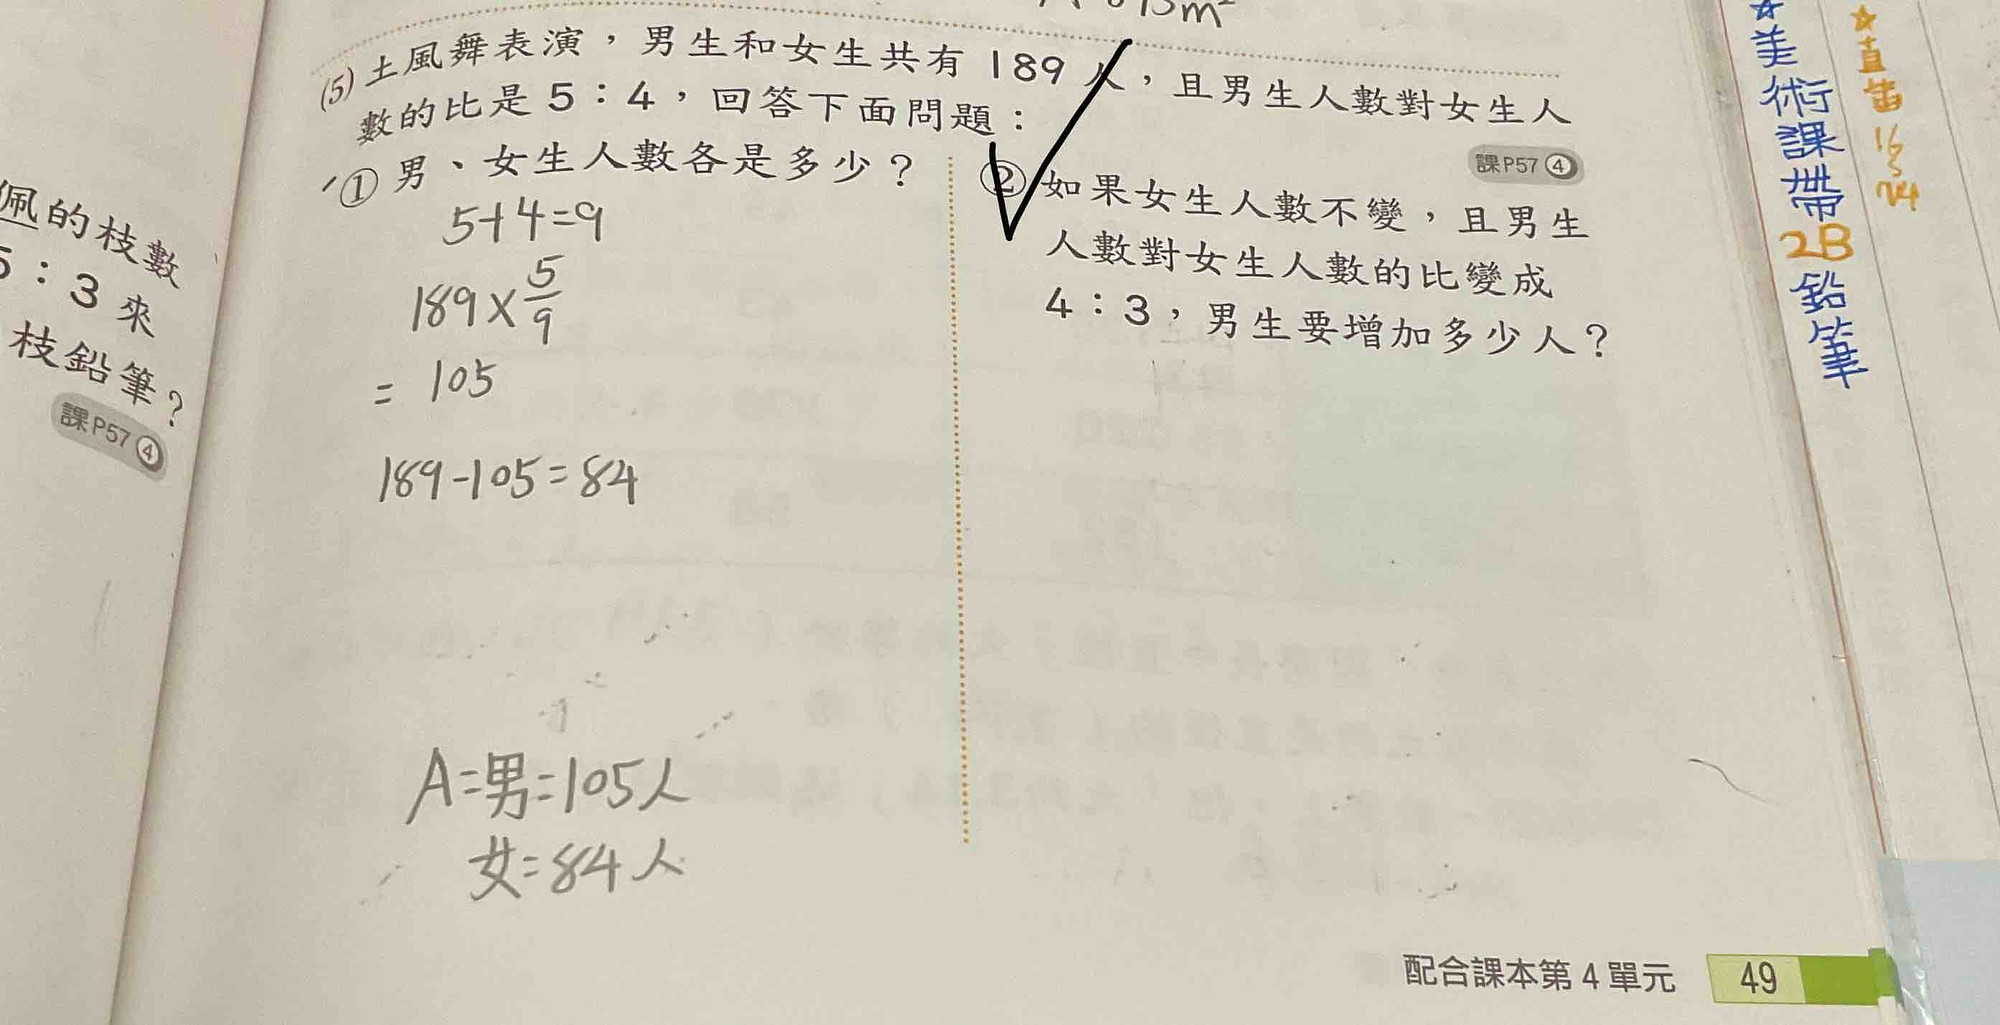 佩的枝數
5：3 來
枝鉛筆？
課P57④
(5) 土風舞表演，男生和女生共有 189 人，且男生人數對女生人
數的比是 5：4，回答下面問題：
課P57④
① 男、女生人數各是多少？
5+4=9
189×5/9
= 105
189-105=84
A=男=105人
女=84人
② 如果女生人數不變，且男生
人數對女生人數的比變成
4：3，男生要增加多少人？
☆美術課帶2B鉛筆
☆直笛
配合課本第 4 單元 49